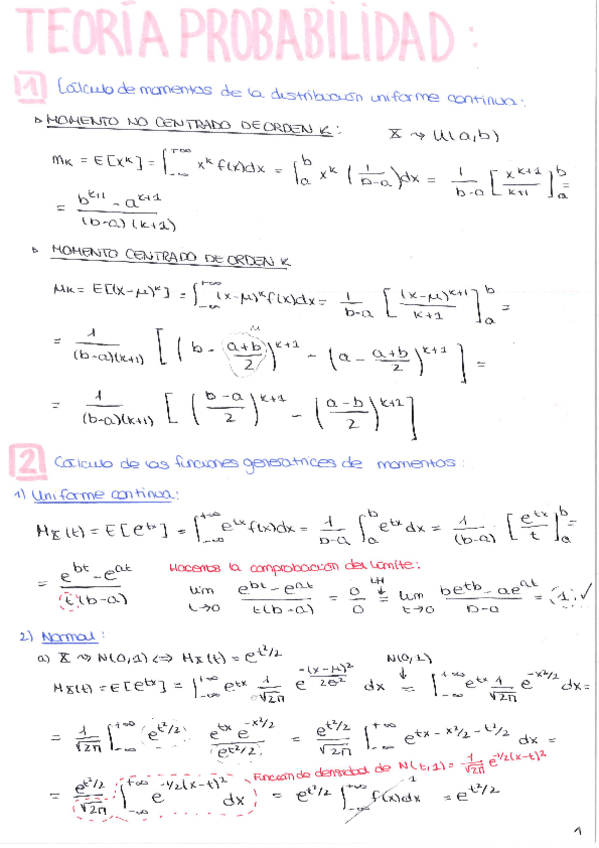 TEORÍA PROBABILIDAD:
1 Cálculo de momentos de la distribución uniforme continua:
▷ MOMENTO NO CENTRADO DE ORDEN K: X ⇝ U(a,b)
m_K = E[X^K] = ∫_{-∞}^{+∞} x^K f(x)dx = ∫_a^b x^K (1/(b-a))dx = 1/(b-a) [x^{K+1}/(K+1)]_a^b =
= (b^{K+1} - a^{K+1})/((b-a)(K+1))
▷ MOMENTO CENTRADO DE ORDEN K
μ_K = E[(X-μ)^K] = ∫_{-∞}^{+∞} (x-μ)^K f(x)dx = 1/(b-a) [(x-μ)^{K+1}/(K+1)]_a^b =
μ
= 1/((b-a)(K+1)) [(b - (a+b)/2)^{K+1} - (a - (a+b)/2)^{K+1}] =
= 1/((b-a)(K+1)) [((b-a)/2)^{K+1} - ((a-b)/2)^{K+1}]
2 Cálculo de las funciones generatrices de momentos:
1) Uniforme continua:
M_X(t) = E[e^{tx}] = ∫_{-∞}^{+∞} e^{tx} f(x)dx = 1/(b-a) ∫_a^b e^{tx} dx = 1/(b-a) [e^{tx}/t]_a^b =
Hacemos la comprobación del límite:
= (e^{bt} - e^{at})/(t(b-a)) lim_{t→0} (e^{bt} - e^{at})/(t(b-a)) = 0/0 =^{LH} lim_{t→0} (be^{tb} - ae^{at})/(b-a) = 1 ✓
2) Normal:
a) X ⇝ N(0,1) ⟺ M_X(t) = e^{t²/2}
M_X(t) = E[e^{tx}] = ∫_{-∞}^{+∞} e^{tx} 1/√2π e^{-(x-μ)²/2σ²} dx =^{N(0,1)} ∫_{-∞}^{+∞} e^{tx} 1/√2π e^{-x²/2} dx =
= 1/√2π ∫_{-∞}^{+∞} e^{t²/2} (e^{tx} e^{-x²/2})/e^{t²/2} = e^{t²/2}/√2π ∫_{-∞}^{+∞} e^{tx - x²/2 - t²/2} dx =
Función de densidad de N(t,1) = 1/√2π e^{-1/2(x-t)²}
= e^{t²/2}/√2π ∫_{-∞}^{+∞} e^{-1/2(x-t)²} dx = e^{t²/2} ∫_{-∞}^{+∞} f(x)dx 1 = e^{t²/2}
1